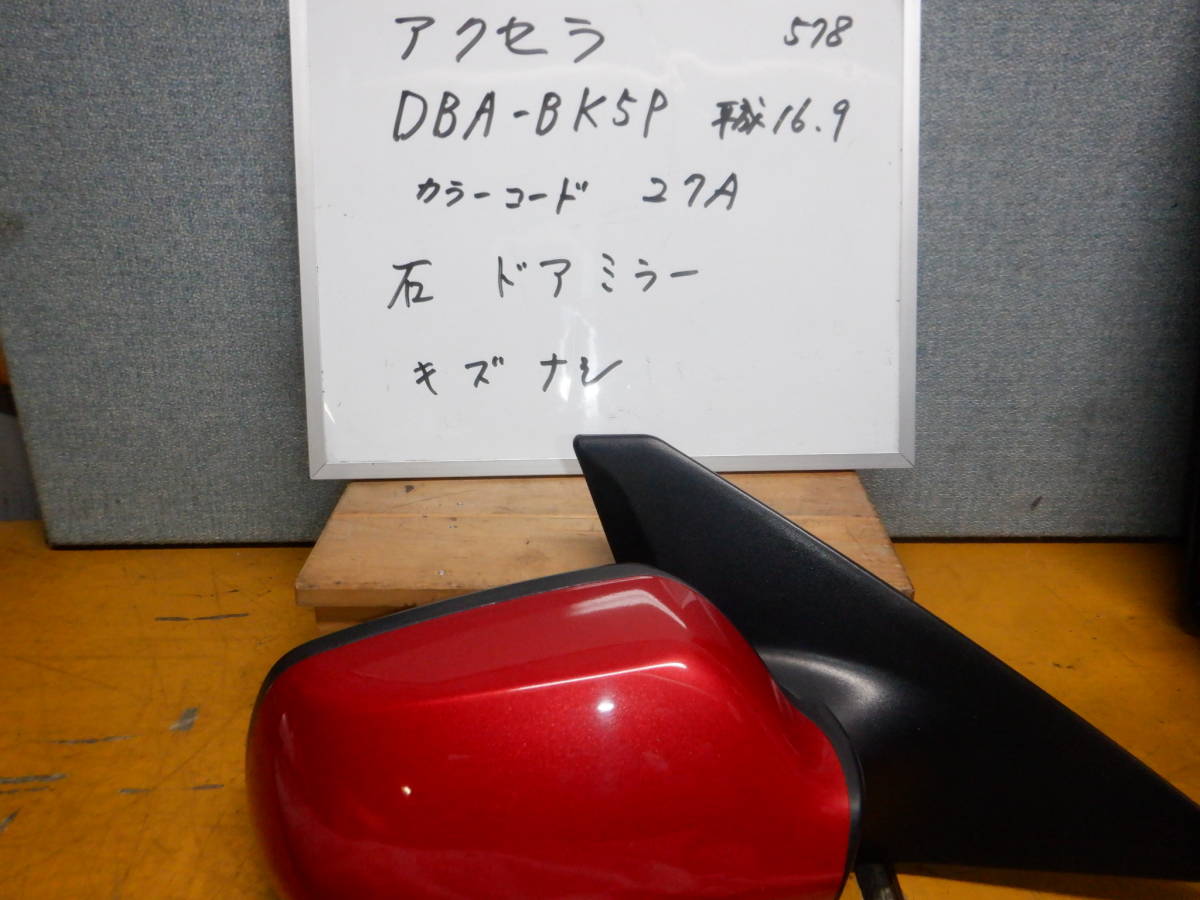 アクセラ 578
DBA-BK5P 平成16.9
カラーコード 27A
石 ドアミラー
キズナシ